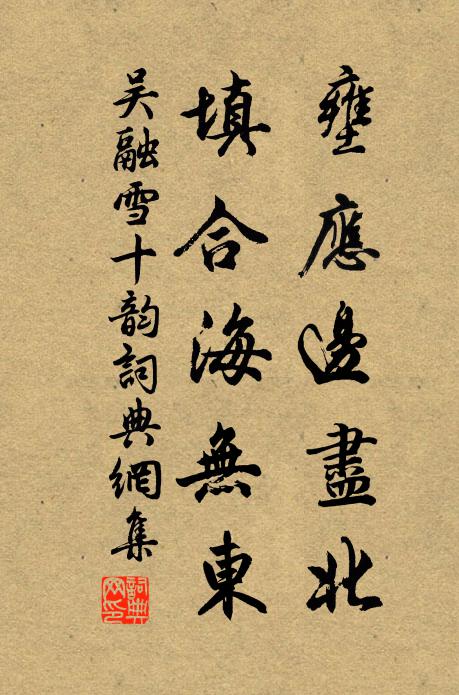 壅應邊盡北
填合海無東
吴融雪十韵詞典網集
詞典網印